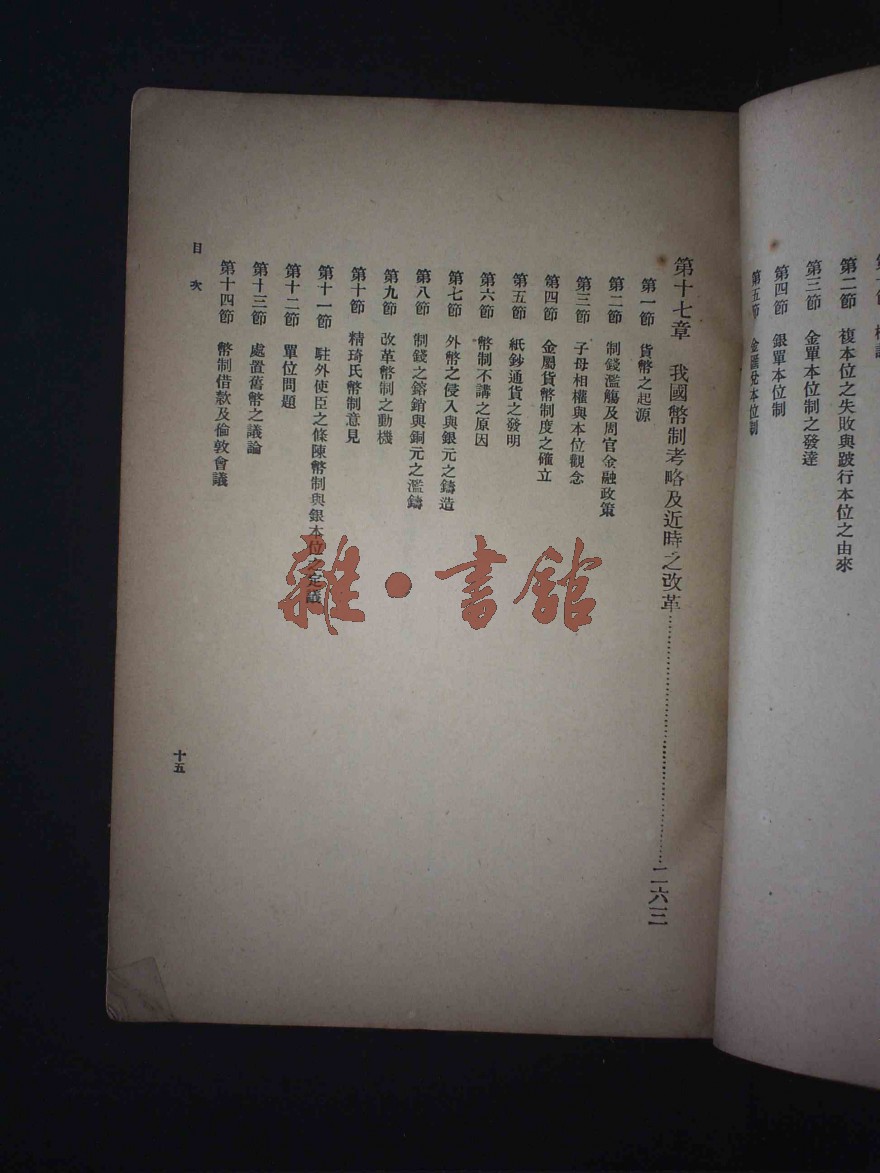 第二節　複本位之失敗與跛行本位之由來
第三節　金單本位制之發達
第四節　銀單本位制
第五節　金匯兌本位制
第十七章　我國幣制考略及近時之改革……二六三
第一節　貨幣之起源
第二節　制錢濫觴及周官金融政策
第三節　子母相權與本位觀念
第四節　金屬貨幣制度之確立
第五節　紙鈔通貨之發明
第六節　幣制不講之原因
第七節　外幣之侵入與銀元之鑄造
第八節　制錢之鎔銷與銅元之濫鑄
第九節　改革幣制之動機
第十節　精琦氏幣制意見
第十一節　駐外使臣之條陳幣制與銀本位之定議
第十二節　單位問題
第十三節　處置舊幣之議論
第十四節　幣制借款及倫敦會議
目次
十五
雜·書館